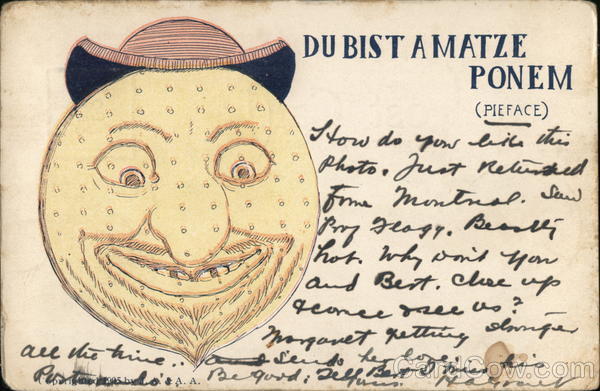 DU BIST A MATZE
PONEM
(PIEFACE)
How do you like this
Photo. Just Returned
from Montreal. Saw
Prof. Beastly
hot. Why don't you
and Bert. Close up
& come & see us?
Margaret getting stronger
all the time.. and sends her love
Be good: Tell Bert
Copyright 1905 by A. A.
CardCow.com